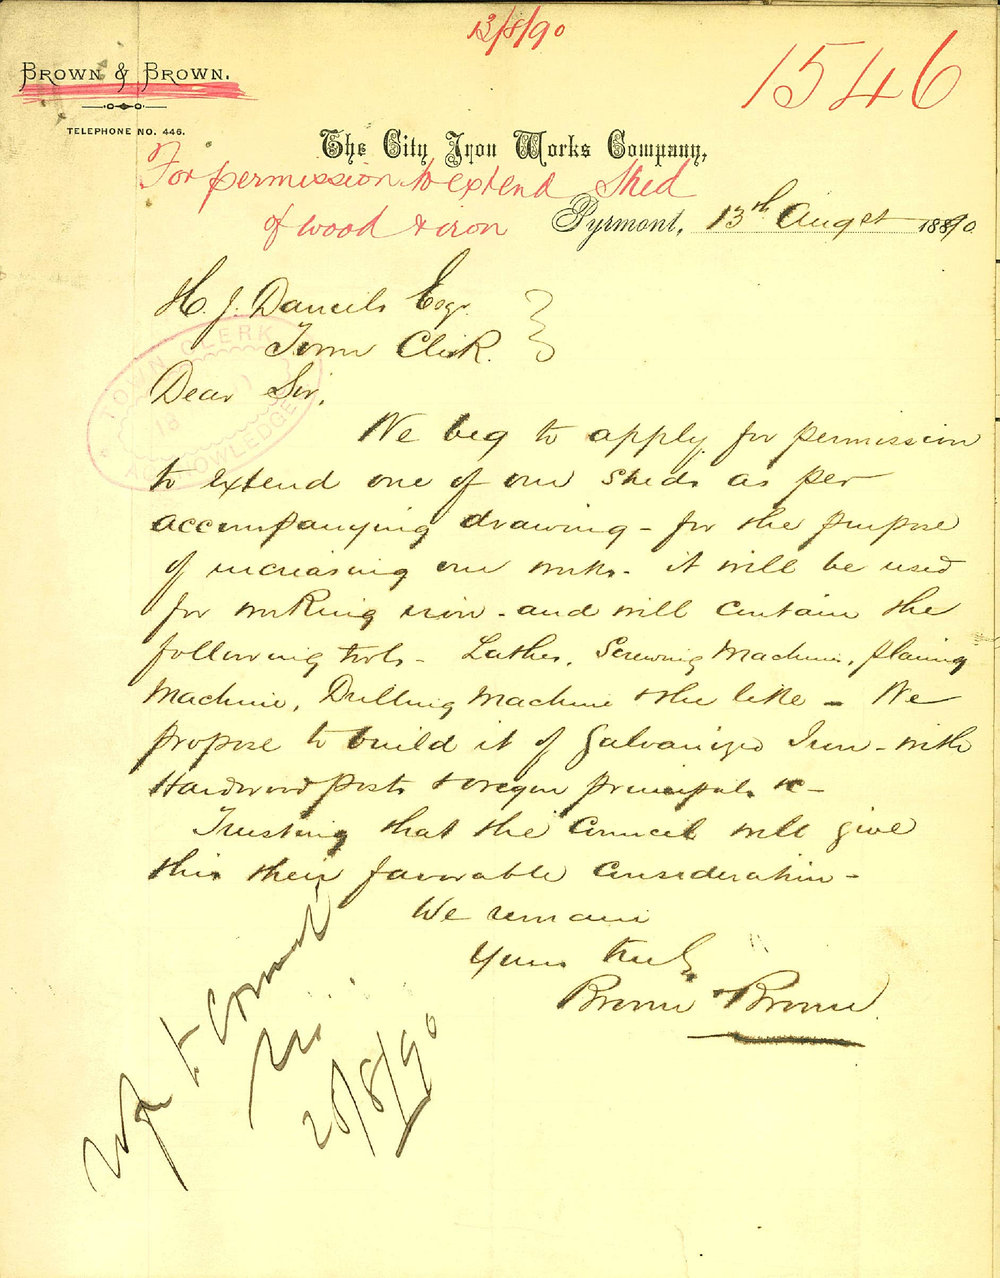 13/8/90
1546
BROWN & BROWN.
TELEPHONE NO. 446.
The City Iron Works Company,
For permission to extend Shed
of wood & iron
Pyrmont, 13th Augst 1890
H. J. Daniels Esqr
Town Clerk.
TOWN CLERK
ACKNOWLEDGED
Dear Sir,
We beg to apply for permission
to extend one of our sheds as per
accompanying drawing - for the purpose
of increasing our works - it will be used
for working iron - and will contain the
following tools - Lathes, Screwing Machine, planing
Machine, Drilling Machine & the like - We
propose to build it of Galvanized Iron - with
Hardwood posts & oregon principals &c -
Trusting that the Council will give
this their favorable consideration -
We remain
Yours truly
Brown & Brown.
to Commee
28/8/90